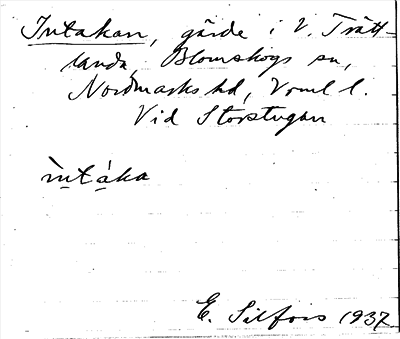 Intakan, gärde i V. Trätt-
landa, Blomskogs sn,
Nordmarks hd, Vrml l.
Vid Storstugan
ìntáka
E. Silfors 1937